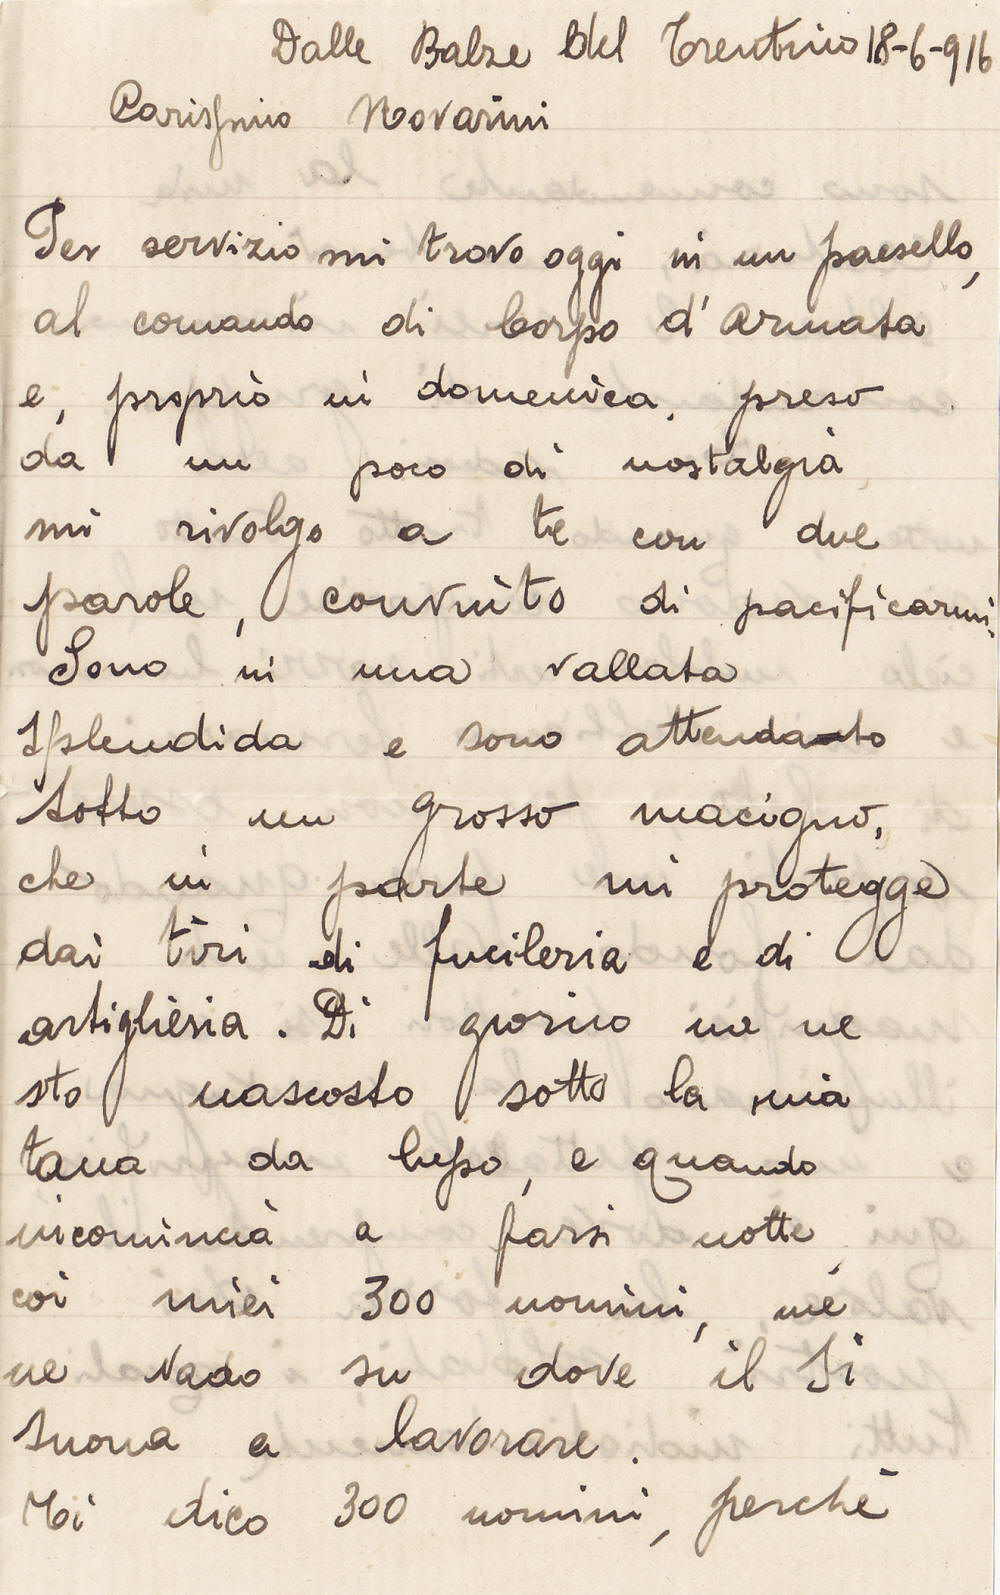 Dalle Balze del Trentino 18-6-916
Carissimo Novarini
Per servizio mi trovo oggi in un paesello,
al comando di Corpo d'Armata
e, proprio in domenica, preso
da un poco di nostalgia
mi rivolgo a te con due
parole, convinto di pacificarmi.
Sono in una vallata
splendida e sono attendato
sotto un grosso macigno,
che in parte mi protegge
dai tiri di fucileria e di
artiglieria. Di giorno me ne
sto nascosto sotto la mia
tana da lupo, e quando
incomincia a farsi notte,
coi miei 300 uomini, me
ne vado su dove il Si
suona a lavorare.
Ti dico 300 uomini, perchè